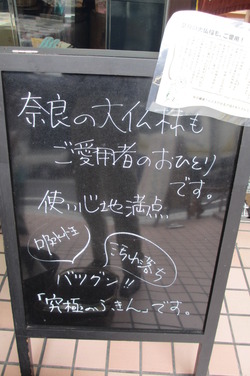 奈良の大仏様も
ご愛用者のおひとり
です。
使い心地満点
吸水性
こちわ落ち
バツグン!!
「究極のふきん」です。